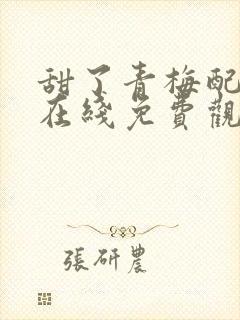 甜了青梅配
在綫免費觀
張研農